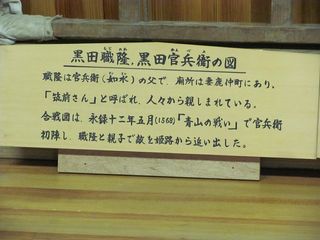 黒田職隆、黒田官兵衛の図
職隆は官兵衛(如水)の父で、廟所は妻鹿仲町にあり、
「筑前さん」と呼ばれ、人々から親しまれている。
合戦図は、永録十二年五月(1569)「青山の戦い」で官兵衛
初陣し、職隆と親子で敵を姫路から追い出した。